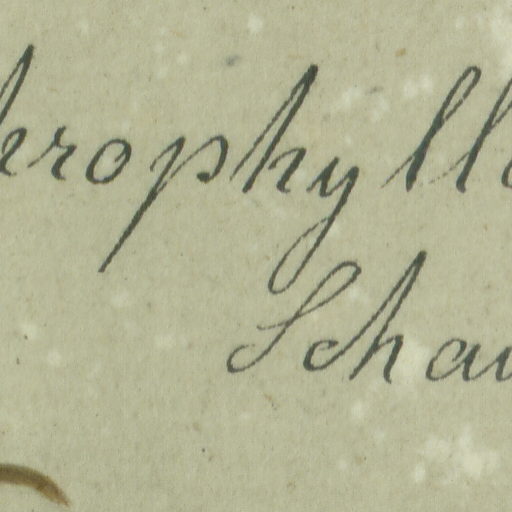 hrophyll
Schau